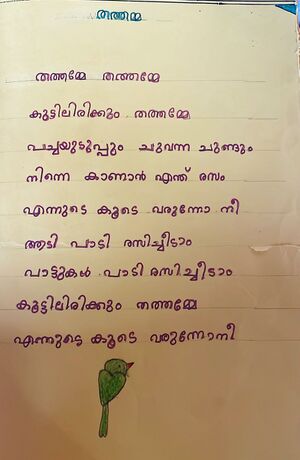 തത്തമ്മ
തത്തമ്മേ തത്തമ്മേ
കൂട്ടിലിരിക്കും തത്തമ്മേ
പച്ചയുടുപ്പും ചുവന്ന ചുണ്ടും
നിന്നെ കാണാൻ എന്ത് രസം
എന്നുടെ കൂടെ വരുന്നോ നീ
ആടി പാടി രസിച്ചീടാം
പാട്ടുകൾ പാടി രസിച്ചീടാം
കൂട്ടിലിരിക്കും തത്തമ്മേ
എന്നുടെ കൂടെ വരുന്നോനീ